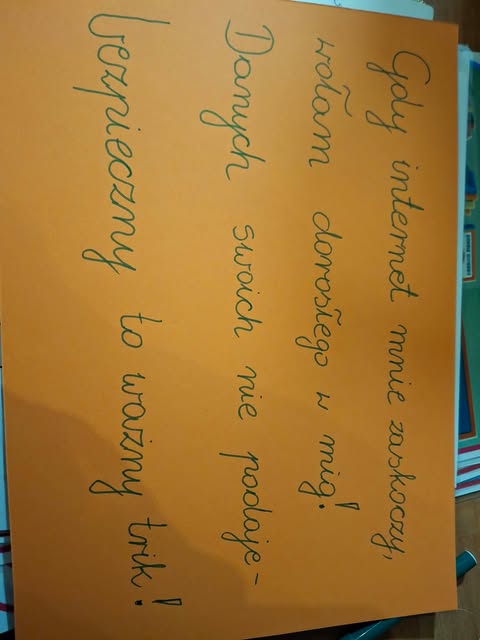 Gdy internet mnie zaskoczy,
wołam dorosłego w mig!
Danych swoich nie podaję -
bezpieczny to ważny trik!